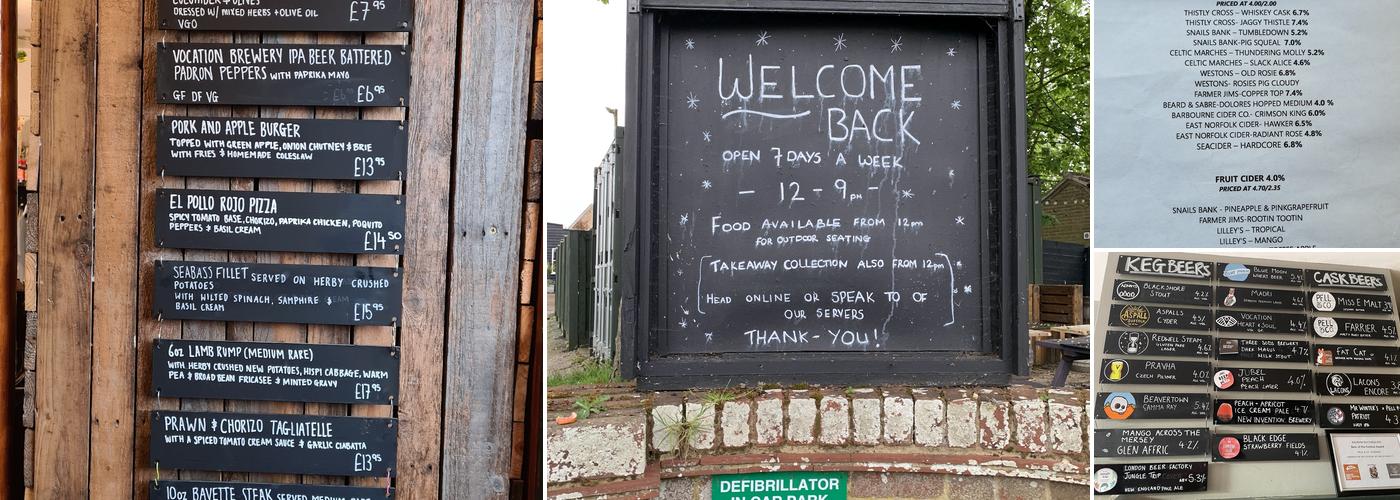 DRESSED W/ MIXED HERBS + OLIVE OIL
VGO
£7.95
VOCATION BREWERY IPA BEER BATTERED
PADRON PEPPERS WITH PAPRIKA MAYO
GF DF VG
£6.95
PORK AND APPLE BURGER
TOPPED WITH GREEN APPLE, ONION CHUTNEY & BRIE
WITH FRIES & HOMEMADE COLESLAW
£13.95
EL POLLO ROJO PIZZA
SPICY TOMATO BASE, CHORIZO, PAPRIKA CHICKEN, POQUITO
PEPPERS & BASIL CREAM
£14.50
SEABASS FILLET SERVED ON HERBY CRUSHED
POTATOES
WITH WILTED SPINACH, SAMPHIRE &
BASIL CREAM
£15.95
6oz LAMB RUMP (MEDIUM RARE)
WITH HERBY CRUSHED NEW POTATOES, HISPI CABBAGE, WARM
PEA & BROAD BEAN FRICASEE & MINTED GRAVY
£17.95
PRAWN & CHORIZO TAGLIATELLE
WITH A SPICED TOMATO CREAM SAUCE & GARLIC CIABATTA
£13.95
10oz BAVETTE STEAK SERVED MEDIUM
WELCOME
BACK
OPEN 7 DAYS A WEEK
- 12 - 9pm -
FOOD AVAILABLE FROM 12pm
FOR OUTDOOR SEATING
TAKEAWAY COLLECTION ALSO FROM 12pm
HEAD ONLINE OR SPEAK TO OF
OUR SERVERS
THANK-YOU!
DEFIBRILLATOR
IN CAR PARK
PRICED AT 4.00/2.00
THISTLY CROSS – WHISKEY CASK 6.7%
THISTLY CROSS- JAGGY THISTLE 7.4%
SNAILS BANK – TUMBLEDOWN 5.2%
SNAILS BANK-PIG SQUEAL 7.0%
CELTIC MARCHES – THUNDERING MOLLY 5.2%
CELTIC MARCHES – SLACK ALICE 4.6%
WESTONS – OLD ROSIE 6.8%
WESTONS- ROSIES PIG CLOUDY
FARMER JIMS-COPPER TOP 7.4%
BEARD & SABRE-DOLORES HOPPED MEDIUM 4.0 %
BARBOURNE CIDER CO.- CRIMSON KING 6.0%
EAST NORFOLK CIDER- HAWKER 6.5%
EAST NORFOLK CIDER-RADIANT ROSE 4.8%
SEACIDER – HARDCORE 6.8%
FRUIT CIDER 4.0%
PRICED AT 4.70/2.35
SNAILS BANK - PINEAPPLE & PINKGRAPEFRUIT
FARMER JIMS-ROOTIN TOOTIN
LILLEY'S – TROPICAL
LILLEY'S – MANGO
KEG BEERS
BLACKSHORE
STOUT 4.2%
ASPALL
ASPALLS
CYDER 4.5%
REDWELL STEAM
4.6%
PRAVHA
CZECH PILSNER 4.0%
BEAVERTOWN
GAMMA RAY 5.4%
MANGO ACROSS THE
MERSEY
GLEN AFFRIC 4.2%
LONDON BEER FACTORY
JUNGLE TRIP 5.3%
NEW ENGLAND PALE ALE
BLUE MOON
WHEAT BEER 5.4%
MADRI
4.6%
VOCATION
HEART & SOUL 4.4%
THREE SODS BREWERY
MILK STOUT 4.7%
JUBEL
PEACH
PEACH LAGER 4.0%
PEACH + APRICOT
ICE CREAM PALE 4.7%
NEW INVENTION BREWERY
BLACK EDGE
STRAWBERRY FIELDS
4.1%
CASK BEERS
PELL & CO
MISS E MALT
PELL & CO
FARRIER
FAT CAT
LACONS
LACONS
ENCORE
MR WINTER'S
PATRIOT